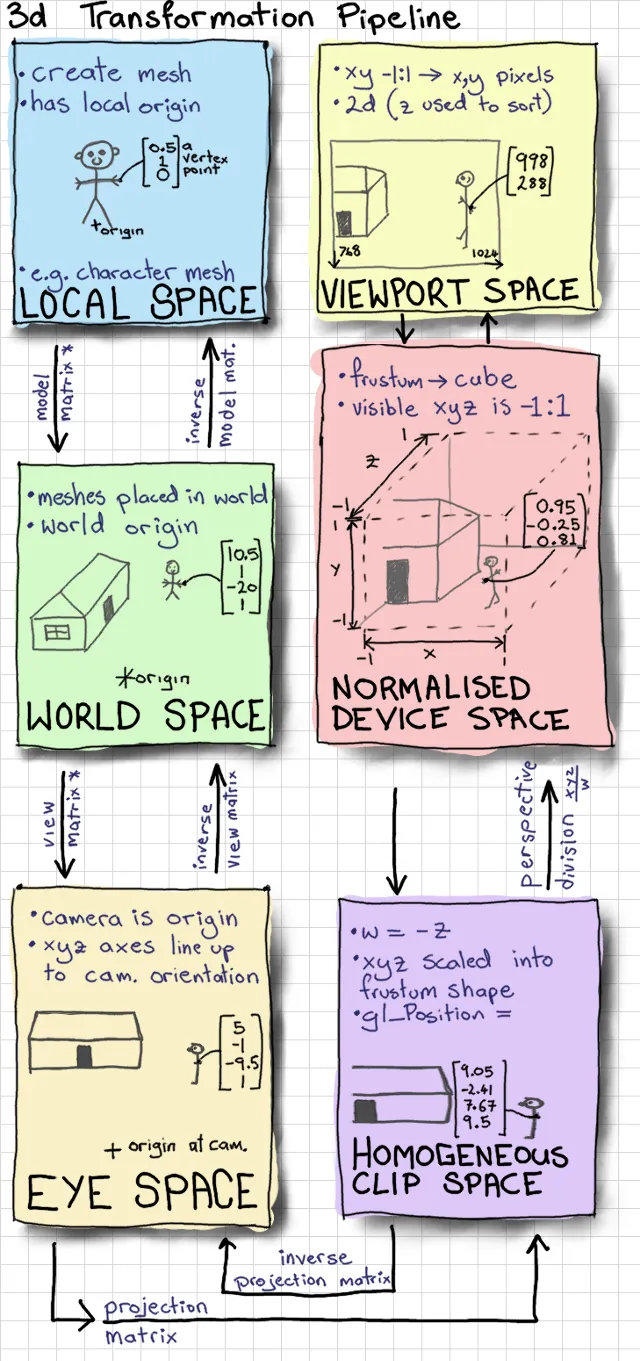 3d Transformation Pipeline
• create mesh
• has local origin
[0.5 1 0] a vertex point
+origin
• e.g. character mesh
LOCAL SPACE
model matrix *
inverse model mat.
• meshes placed in world
• world origin
[10.5 1 -20 1]
*origin
WORLD SPACE
view matrix *
inverse view matrix
• camera is origin
• xyz axes line up
to cam. orientation
[5 -1 -9.5 1]
+ origin at cam.
EYE SPACE
projection
matrix
inverse
projection matrix
• w = -z
• xyz scaled into
frustum shape
• gl_Position =
[9.05 -2.41 7.67 9.5]
HOMOGENEOUS
CLIP SPACE
perspective
division xyz/w
• frustum → cube
• visible xyz is -1:1
1
z
-1
1
y
-1
-1
x
[0.95 -0.25 0.81]
NORMALISED
DEVICE SPACE
• xy -1:1 → x,y pixels
• 2d (z used to sort)
[998 288]
768
1024
VIEWPORT SPACE